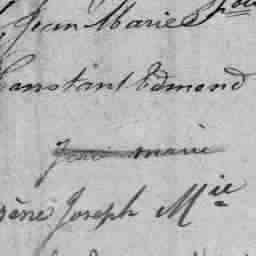 Jean Marie
Constant Edmond
Jean marie
sène Joseph Mie